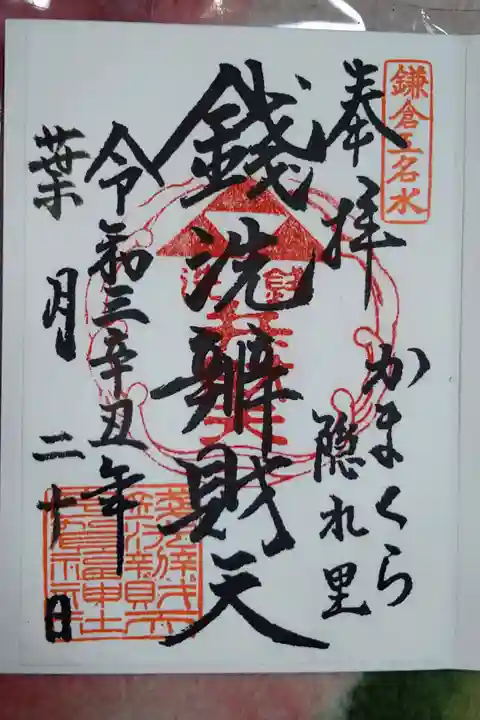 鎌倉五名水
奉拝
かまくら
隠れ里
銭洗辨財天
令和三辛丑年
葉月二十日